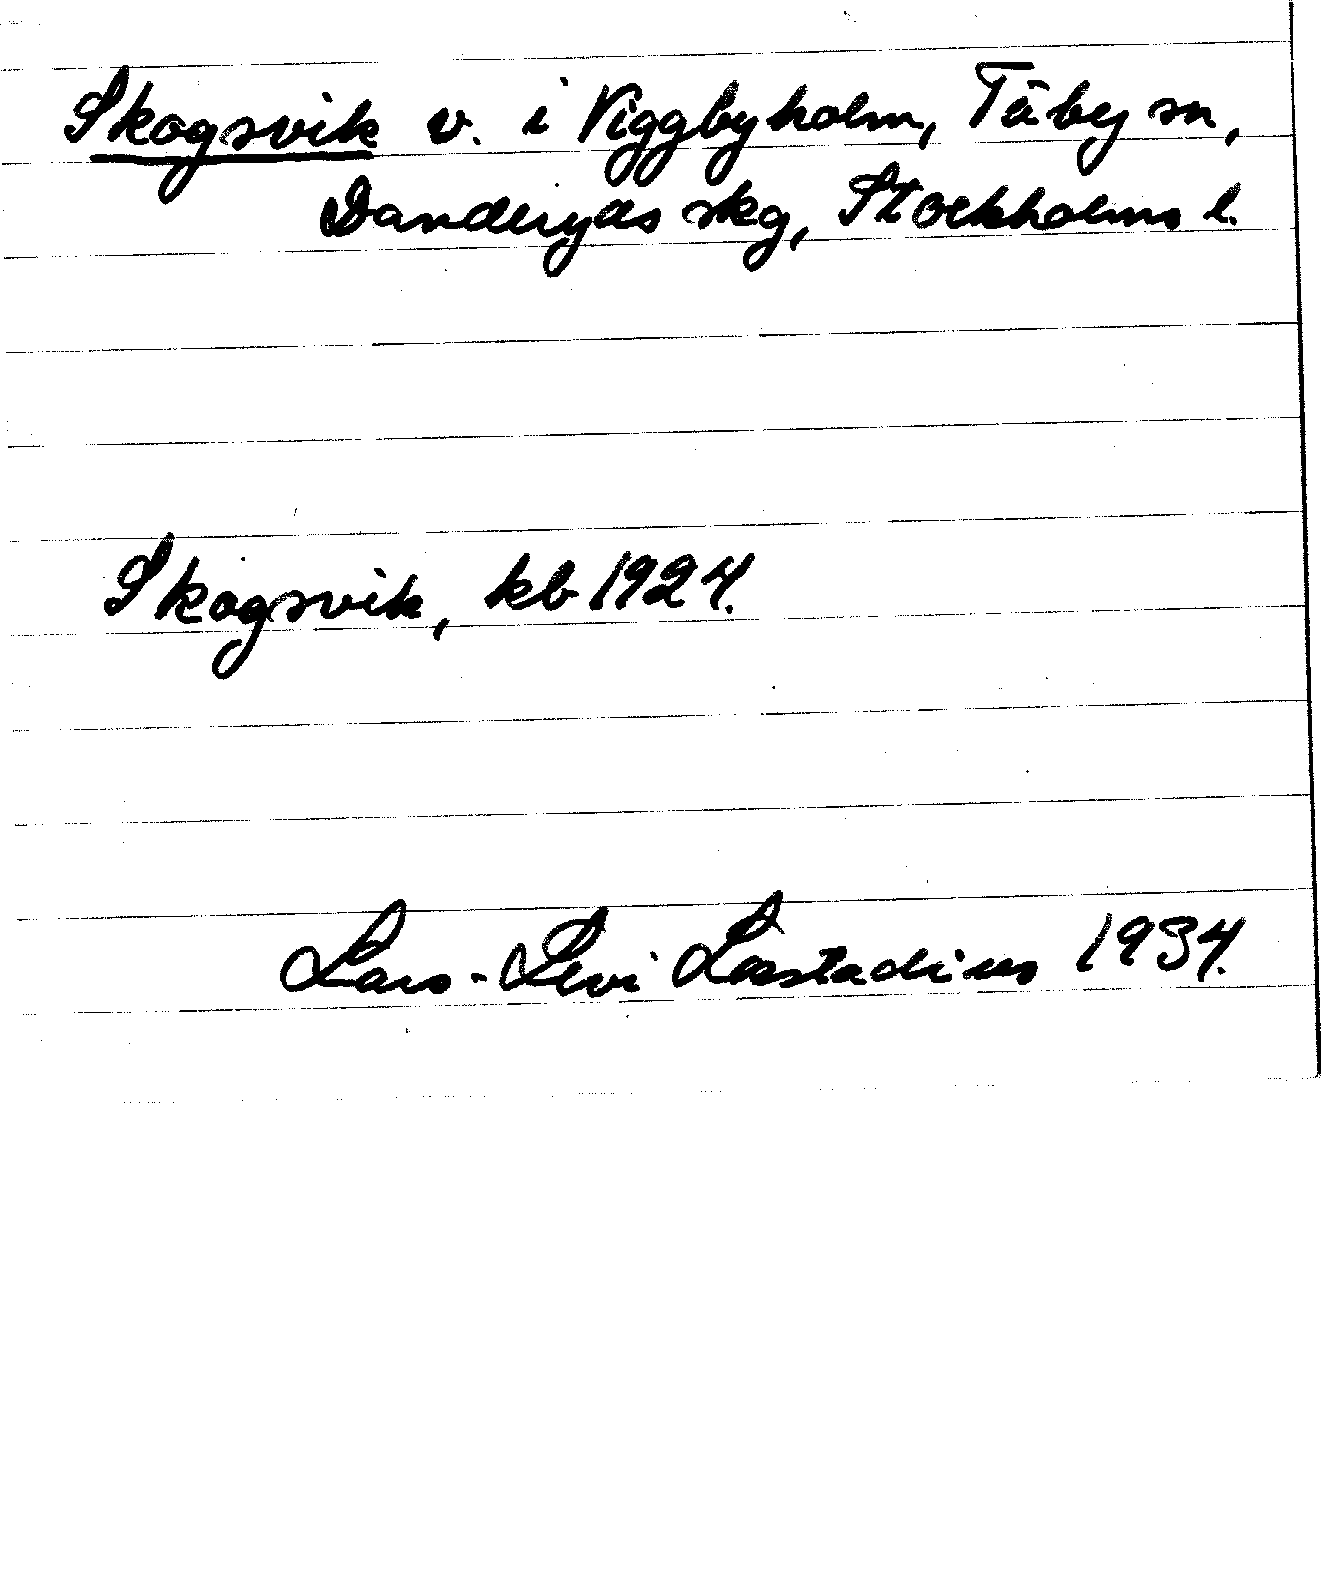 Skogsvik v. i Viggbyholm, Täby sn,
Danderyds skg, Stockholms l.
Skogsvik, kb 1924.
Lars-Levi Læstadius 1934.